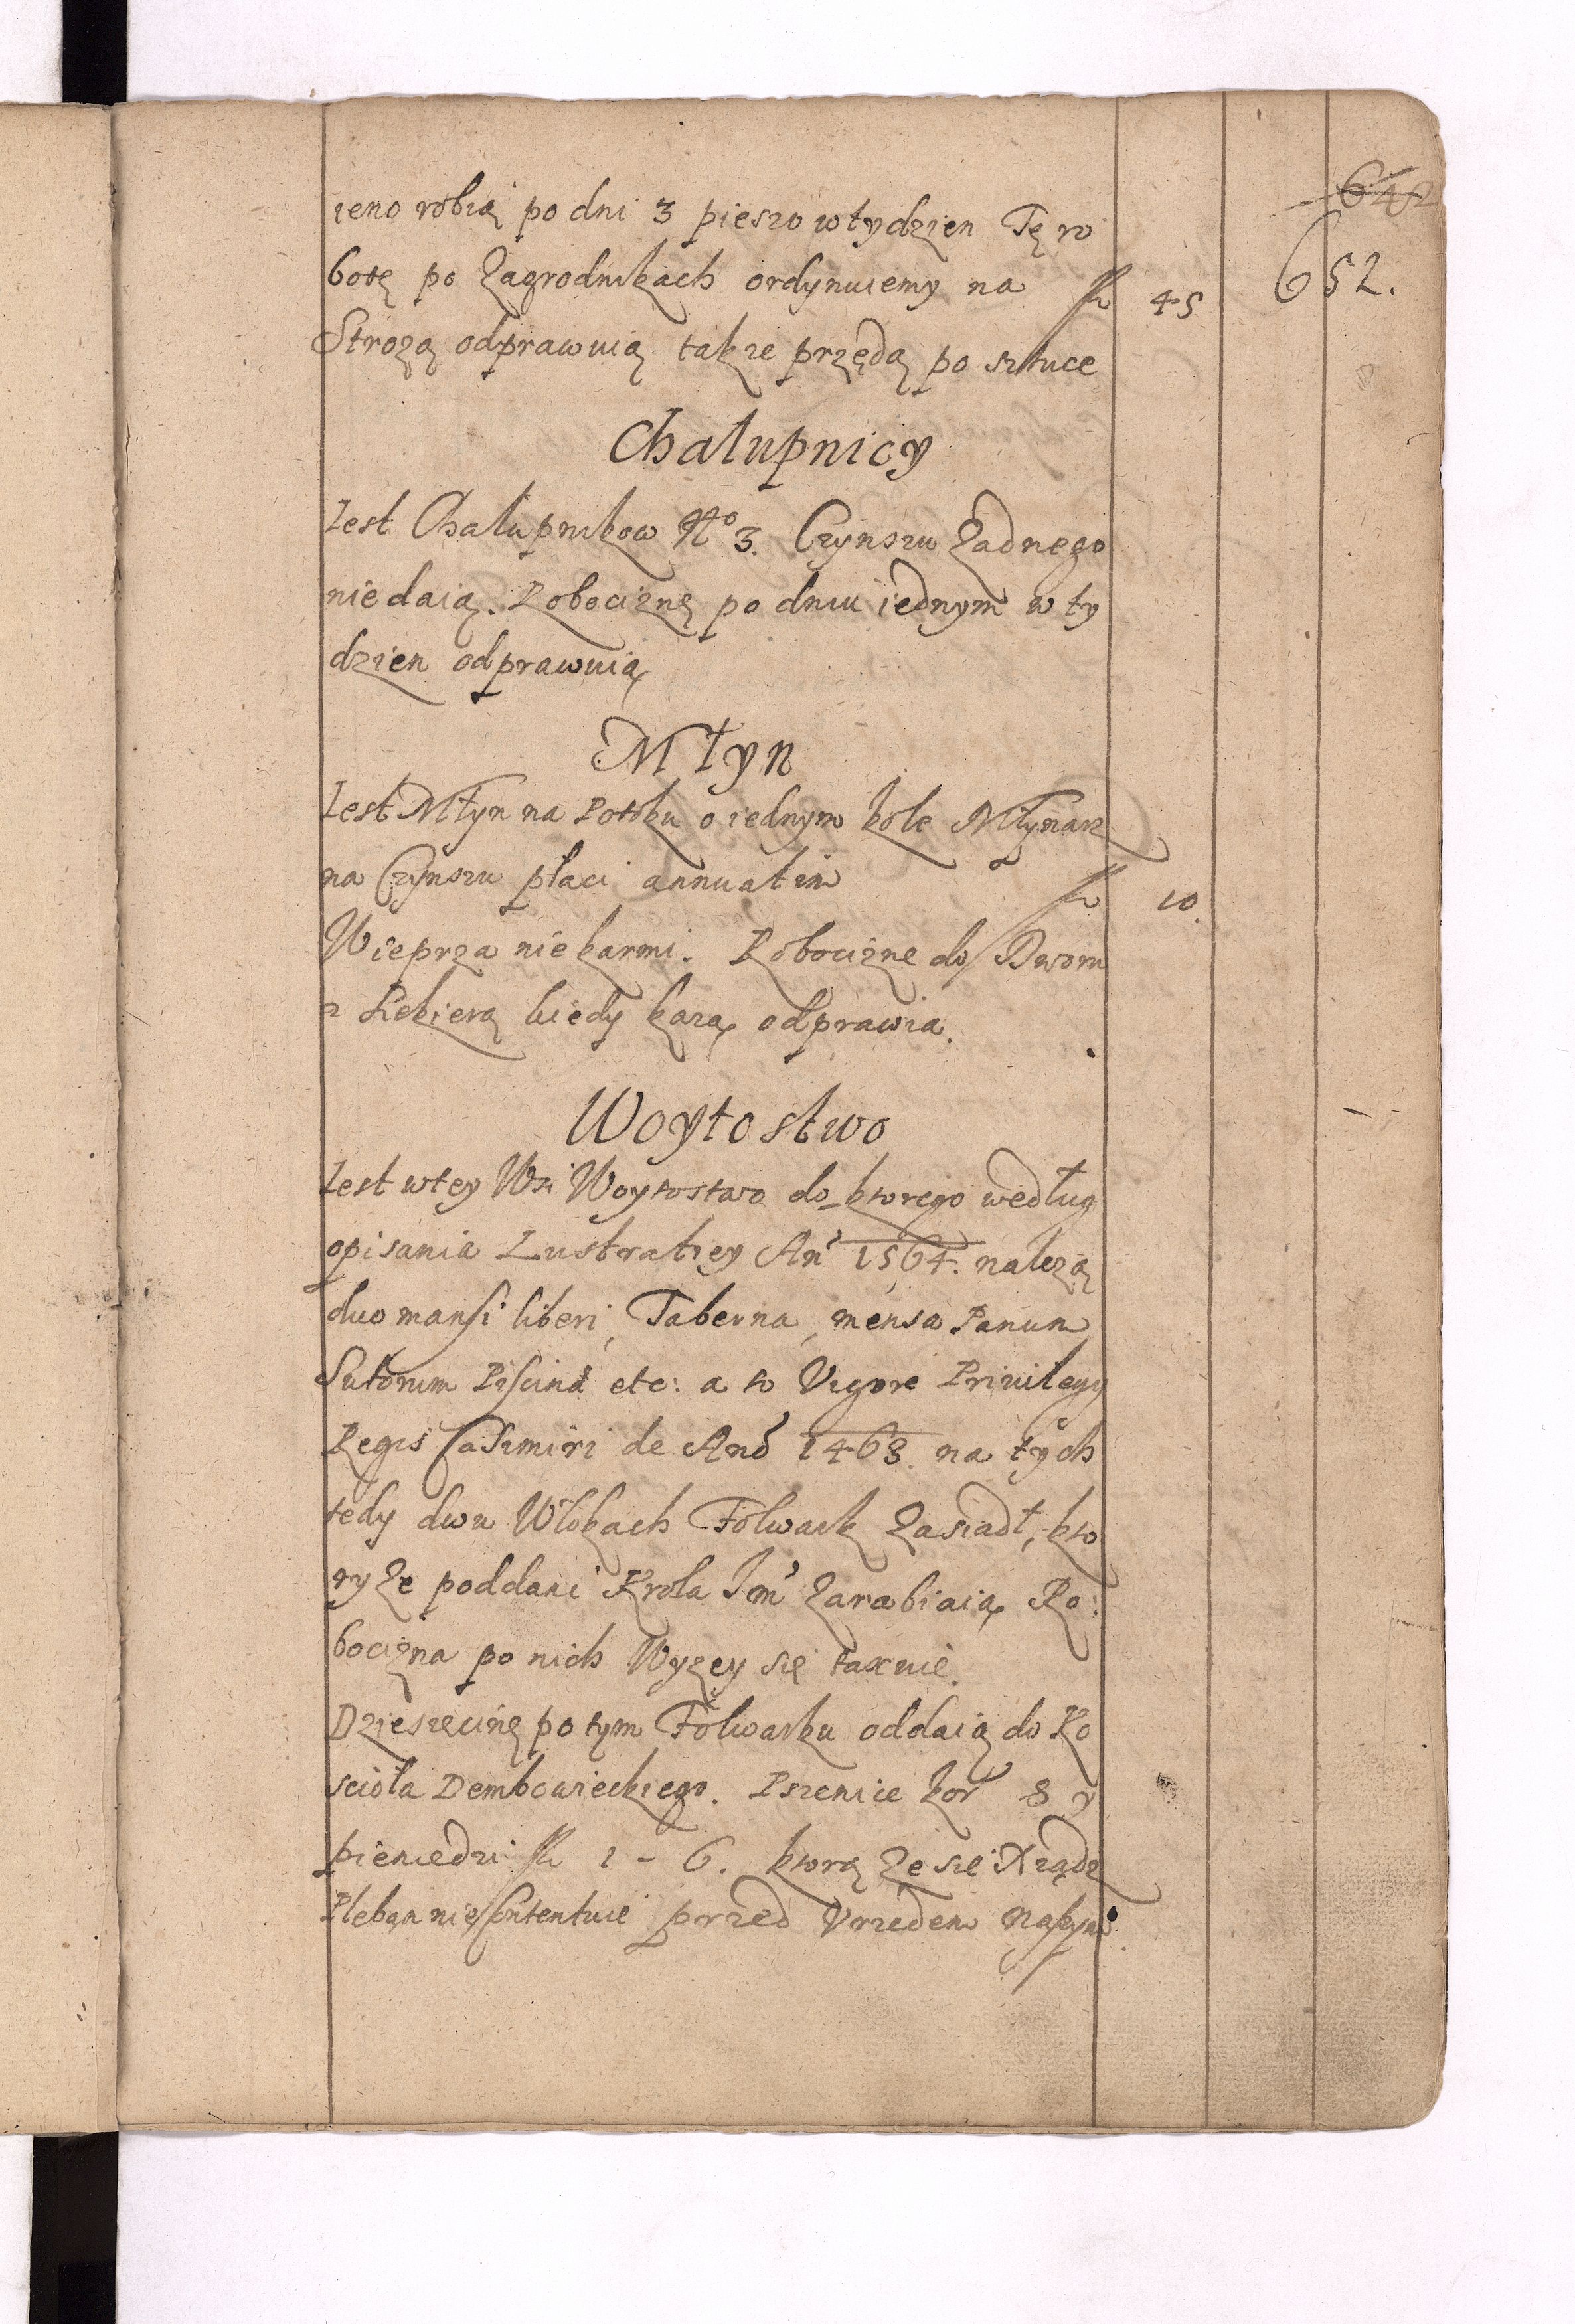 642
652.
ieno robią po dni 3 pieszo w tydzien Tę ro
botę po Zagrodnikach ordynuiemy na fl 45
Strozą odprawuią takze przędą po sztuce
Chałupnicy
Iest Chałupnikow No 3. Czynszu Zadnego
niedaią. Robociznę po dniu iednym w ty
dzien odprawuią
Młyn
Iest Młyn na Potoku o iednym kole Młynarz
na Czynszu płaci annuatim fl 10.
Wieprza nie karmi. Robocizne do Dworu
z Siekierą kiedy kazą odprawia.
Woytostwo
Iest wtey Wsi Woytostwo do ktorego według
opisania Lustratiey An 1564. nalezą
duo mansi liberi, Taberna, mensa Panum
Sutorum Piscina etc: a to Vigore Privilegy
Regis Casimiri de Ano 1468. na tych
tedy dwu Włokach Folwark Zasiadł, kto
ry Ze poddani Krola Im Zarabiaią Ro:
bocizna po nich Wyzey się taxuie.
Dziesięcinę po tym Folwarku oddaią do Ko
scioła Dembowieckiego. Pszenice kor 8 y
pieniedzi fl 1 - 6. ktorą Ze się Xządz
Pleban nie Contentuie przed Vrzedem Naszym